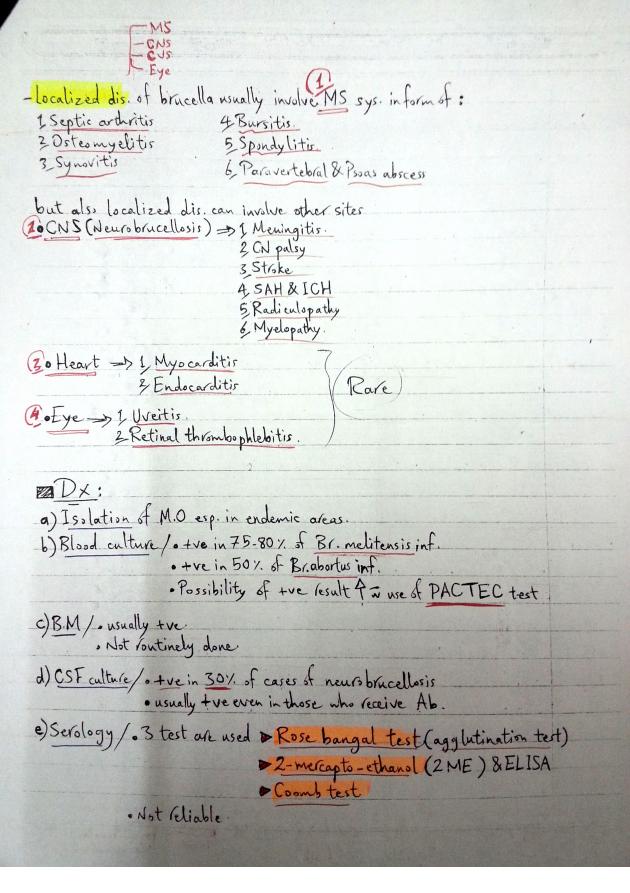 MS
CNS
CVS
Eye
①
- Localized dis. of brucella usually involve MS sys. in form of :
1, Septic arthritis 4, Bursitis.
2, Osteomyelitis 5, Spondylitis.
3, Synovitis 6, Paravertebral & Psoas abscess
but also localized dis. can involve other sites
② • CNS (Neurobrucellosis) ⇒ 1, Meningitis.
2, CN palsy
3, Stroke
4, SAH & ICH
5, Radiculopathy
6, Myelopathy.
③ • Heart → 1, Myocarditis
2, Endocarditis
Rare
④ • Eye → 1, Uveitis.
2, Retinal thrombophlebitis.
Dx :
a) Isolation of M.O esp. in endemic areas.
b) Blood culture / • +ve in 75-80% of Br. melitensis inf.
• +ve in 50% of Br. abortus inf.
• Possibility of +ve result ↑ use of PACTEC test
c) B.M / • usually +ve
• Not routinely done
d) CSF culture / • +ve in 30% of cases of neurobrucellosis
• usually +ve even in those who receive Ab.
e) Serology / • 3 test are used ► Rose bangal test (agglutination test)
► 2-mercapto-ethanol (2ME) & ELISA
► Coomb test
• Not reliable.